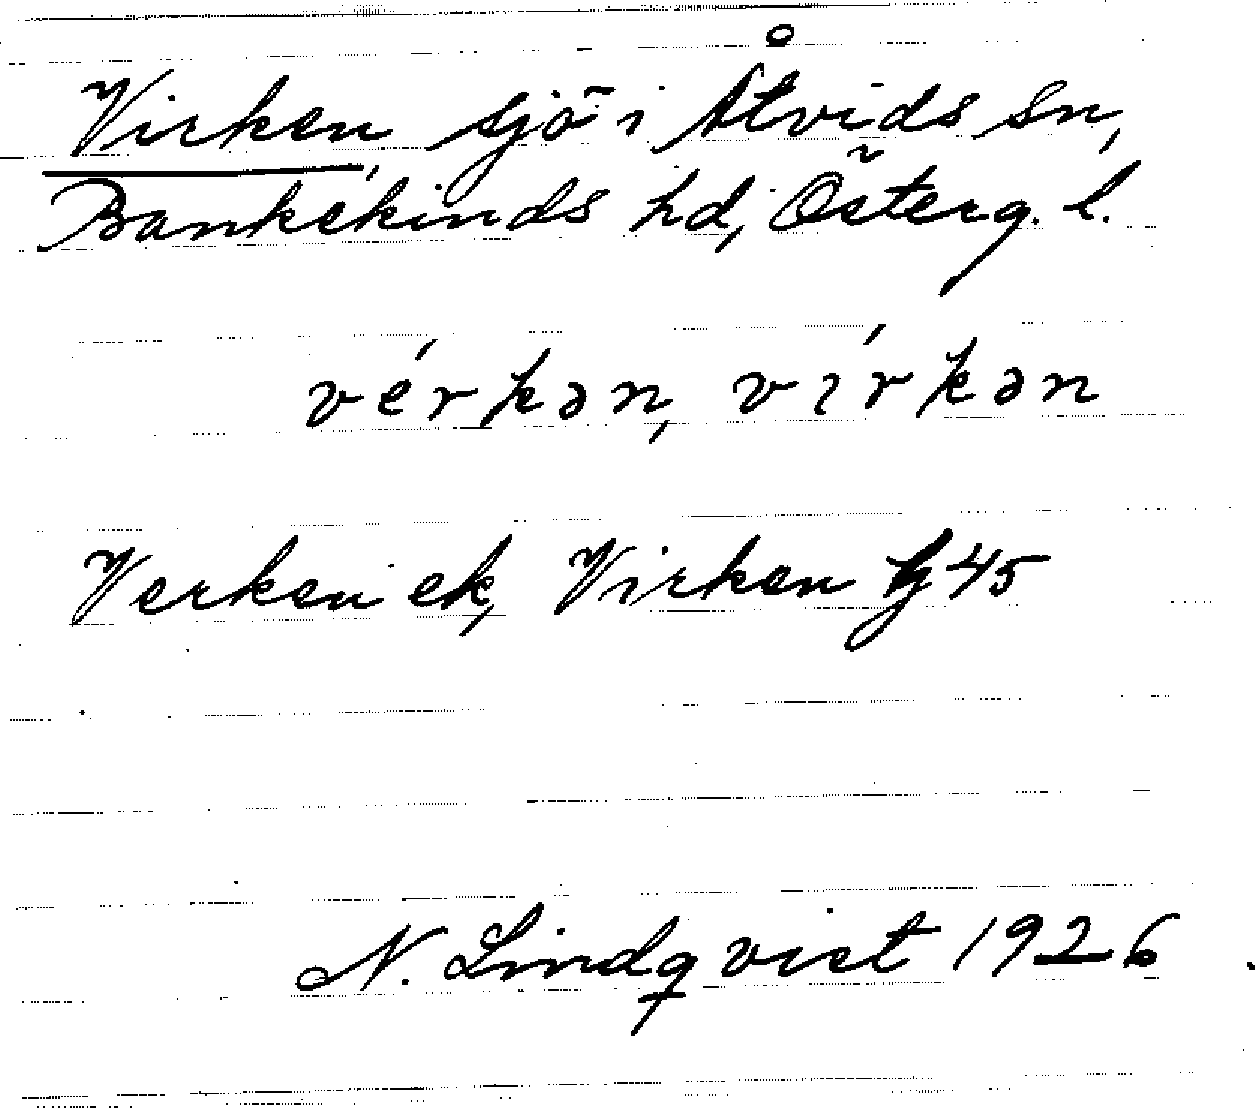 Virken, sjö i Åtvids sn,
Bankekinds hd, Österg. l.
vérkən, vírkən
Verken ek, Virken hj 45
N. Lindqvist 1926